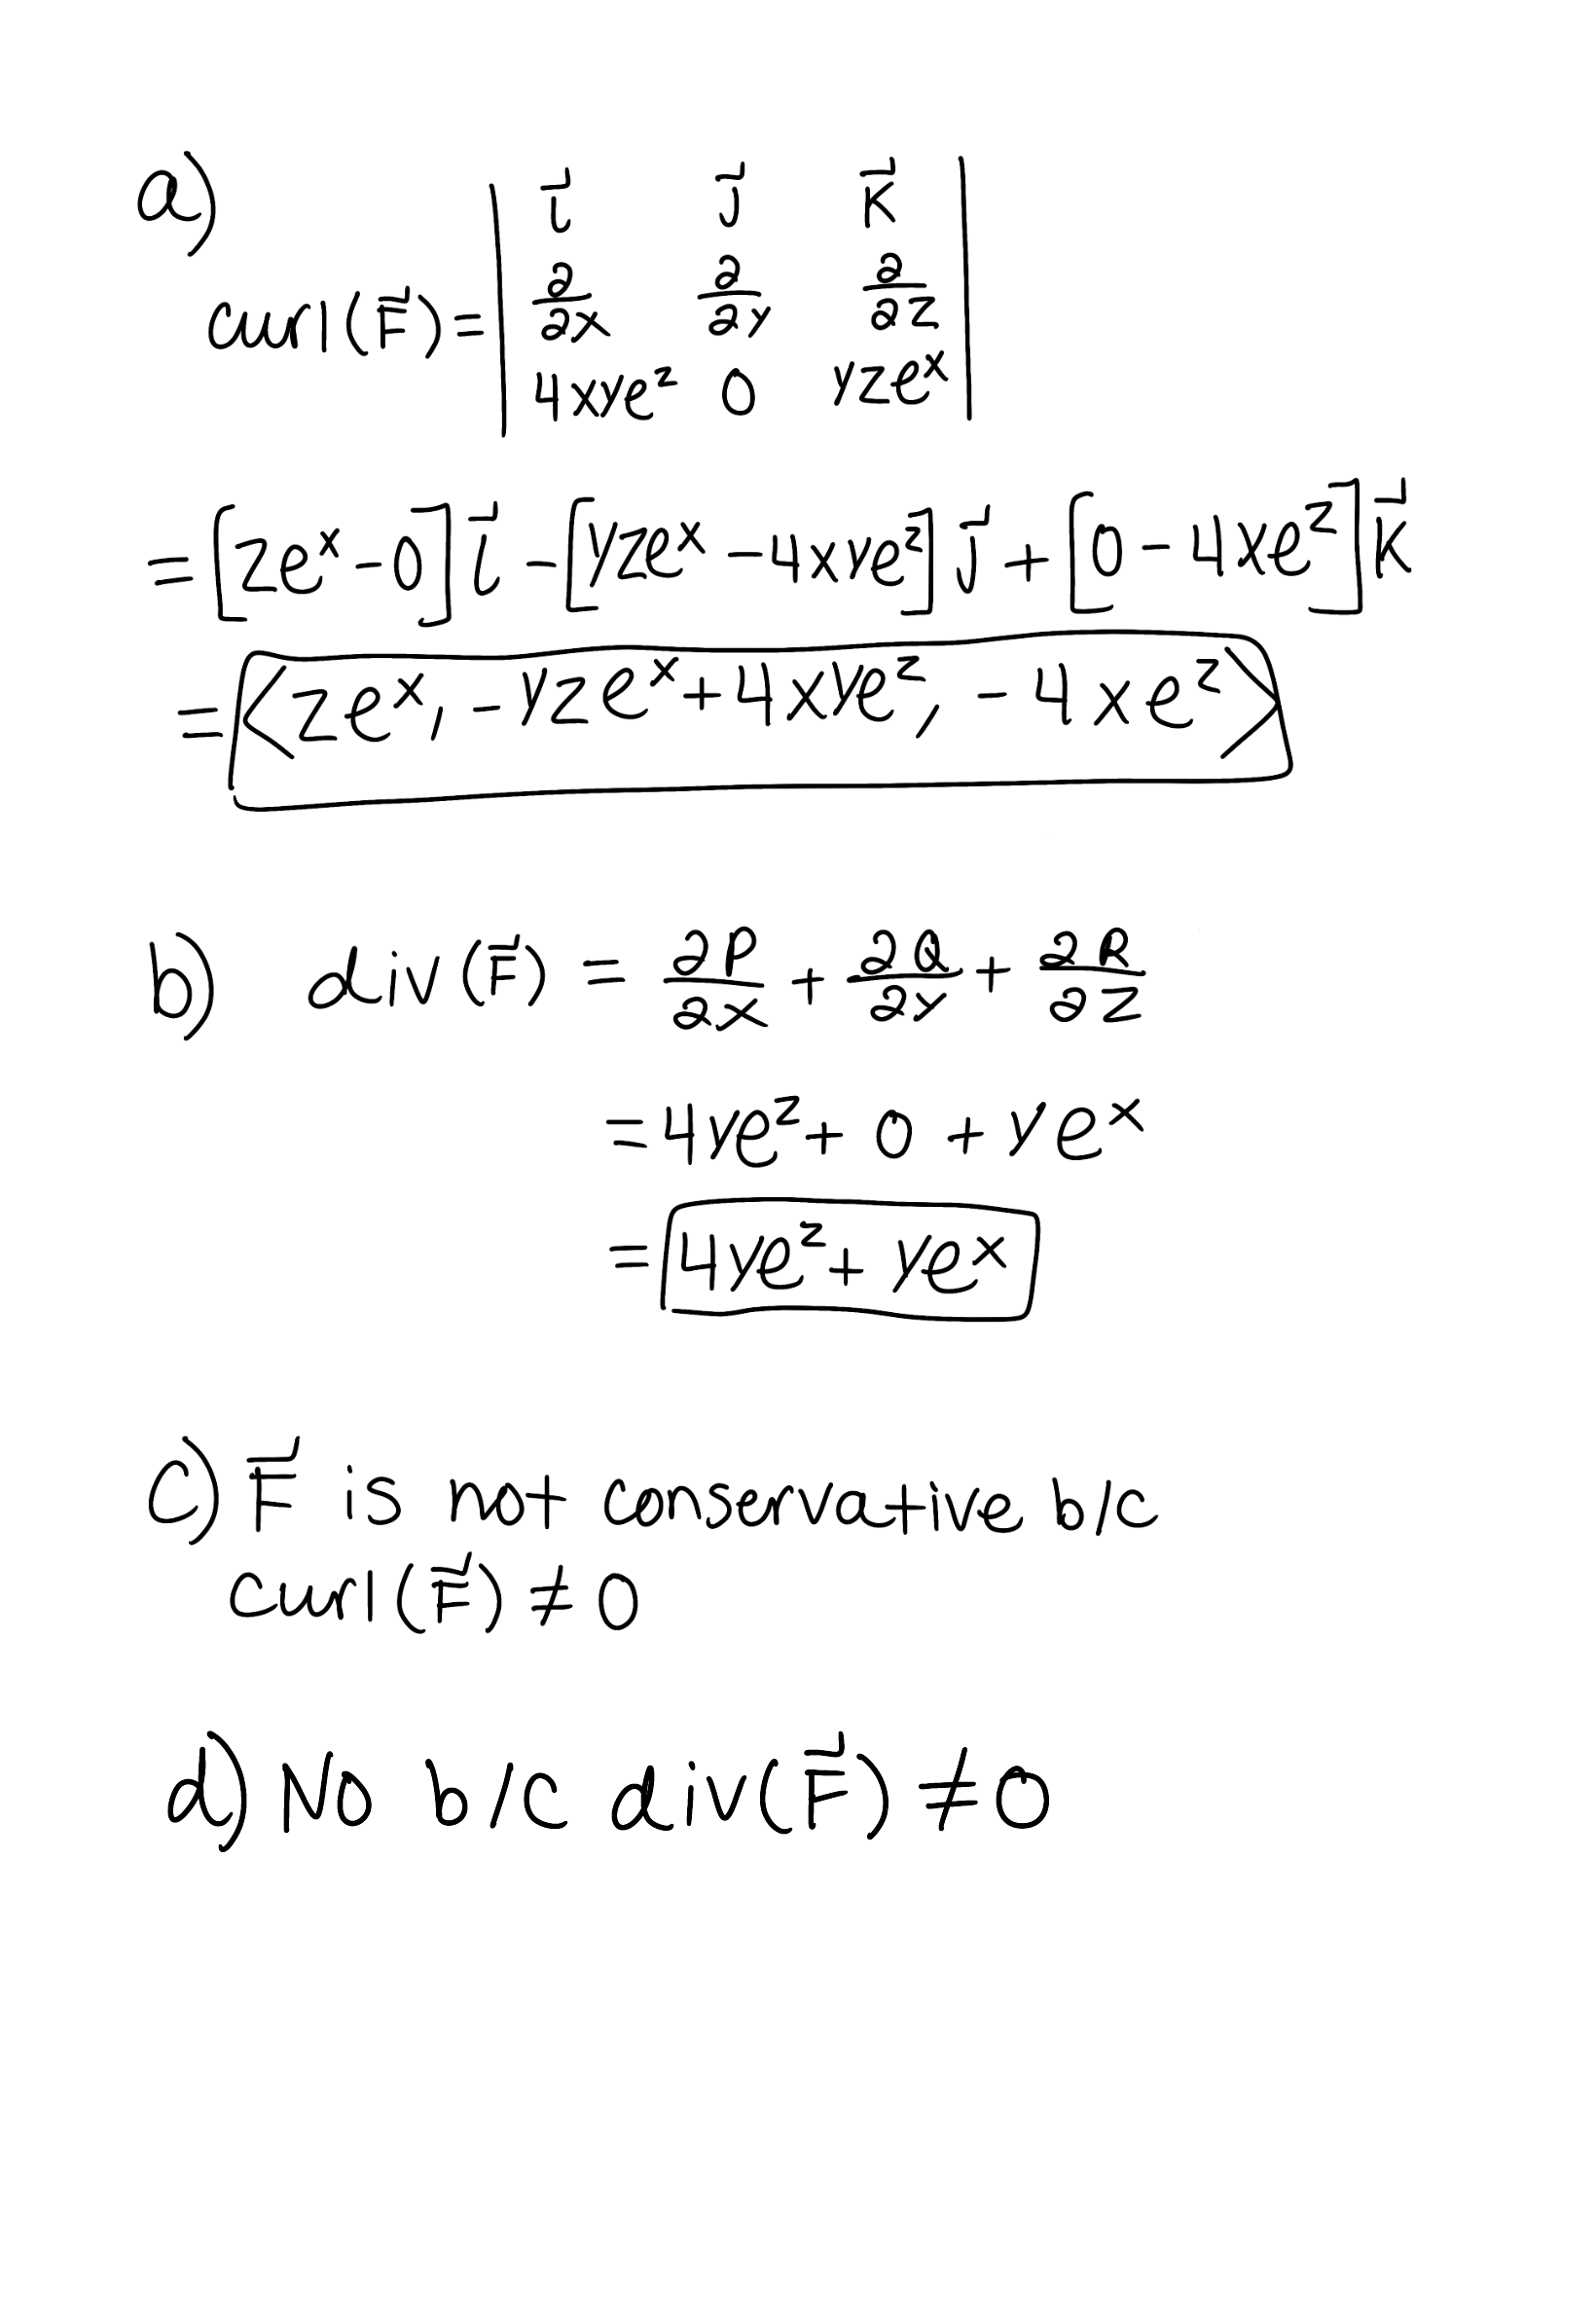 a)
curl(F⃗) = | i⃗ j⃗ k⃗ |
| ∂/∂x ∂/∂y ∂/∂z |
| 4xye^z 0 yze^x |
= [ze^x - 0] i⃗ - [yze^x - 4xye^z] j⃗ + [0 - 4xe^z] k⃗
= ⟨ze^x, -yze^x + 4xye^z, -4xe^z⟩
b) div(F⃗) = ∂P/∂x + ∂Q/∂y + ∂R/∂z
= 4ye^z + 0 + ye^x
= 4ye^z + ye^x
c) F⃗ is not conservative b/c
curl(F⃗) ≠ 0
d) No b/c div(F⃗) ≠ 0